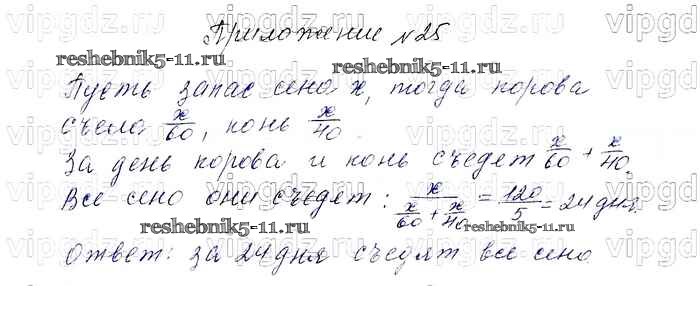 vipgdz.ru vipgdz.ru vipgdz.ru vipgdz.ru
Приложение №25
reshebnik5-11.ru
reshebnik5-11.ru
Пусть запас сена x, тогда корова
съела x/60, конь x/40.
За день корова и конь съедят x/60 + x/40.
Все сено они съедят: x/(x/60 + x/40) = 120/5 = 24 дня.
reshebnik5-11.ru
reshebnik5-11.ru
Ответ: за 24 дня съедят все сено